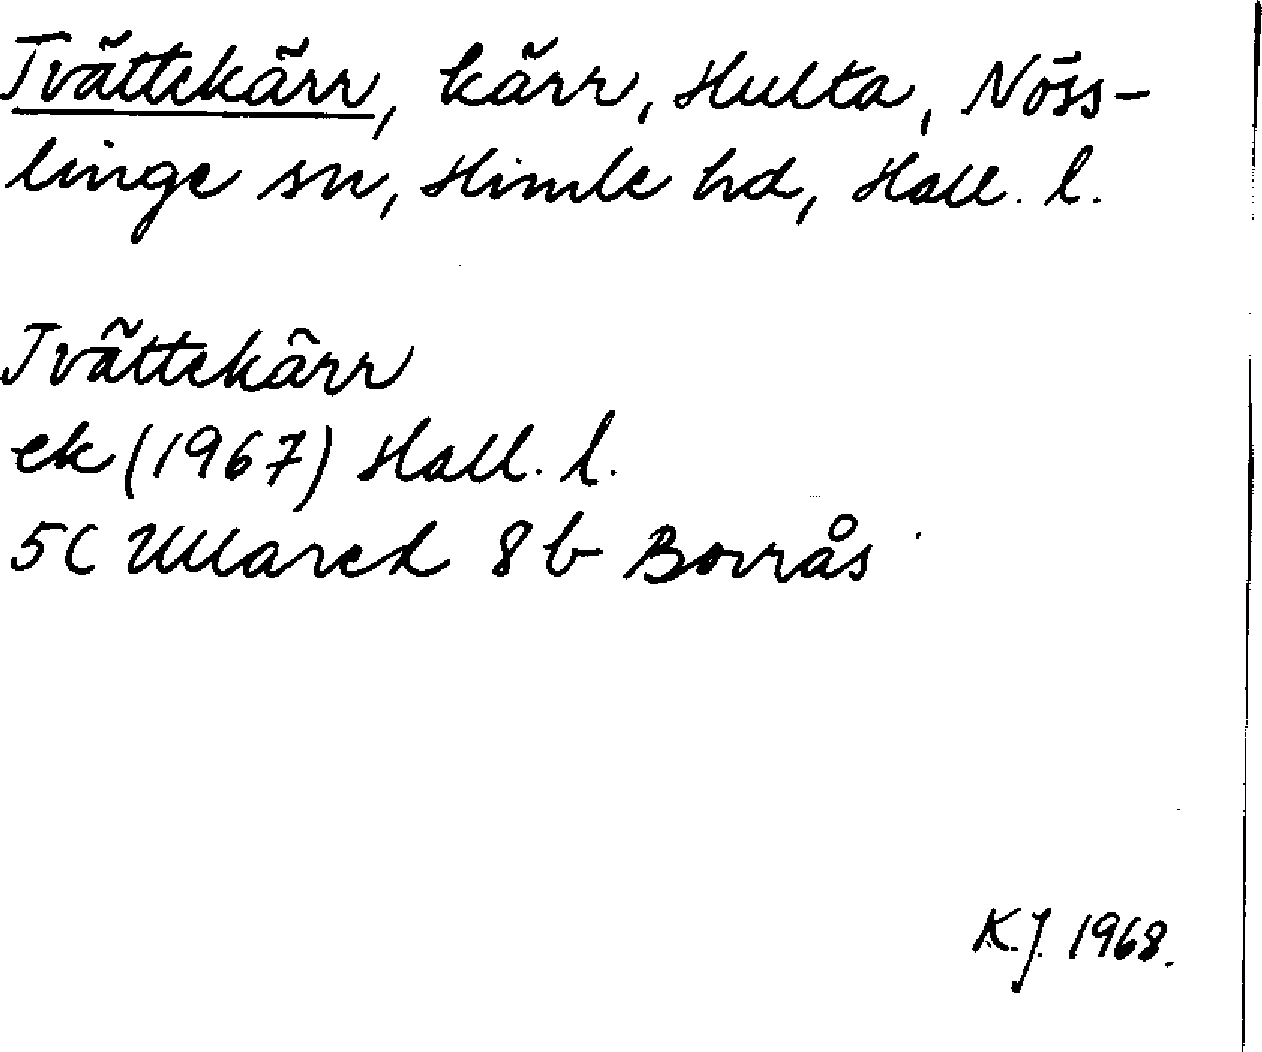 Tvättekärr, kärr, Hulta, Nöss-
linge sn, Himle hd, Hall. l.
Tvättekärr
ek (1967) Hall. l.
5C Ullared 8b Borrås
K.J. 1968.